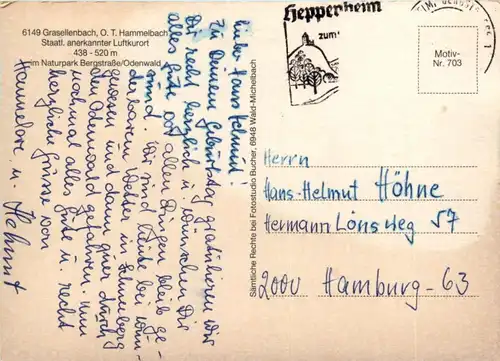 6149 Grasellenbach, O. T. Hammelbach
Staatl. anerkannter Luftkurort
438 - 520 m
im Naturpark Bergstraße/Odenwald
Liebe Hans Helmut!
Zu Deinem Geburtstag gratulieren wir
Dir recht herzlich u. wünschen Dir
alles Gute vor allen Dingen bleib ge-
sund. Wir sind heute bei wun-
derbarem Wetter in
gewesen und dann quer durch
den Odenwald gefahren. Nun
nochmal alles Gute u. recht
herzliche Grüsse von
Hannelore u. Helmut
Sämtliche Rechte bei Fotostudio Bucher, 6948 Wald-Michelbach
Heppenheim
zum
Motiv-
Nr. 703
Herrn
Hans-Helmut Höhne
Hermann Löns Weg 57
2000 Hamburg-63